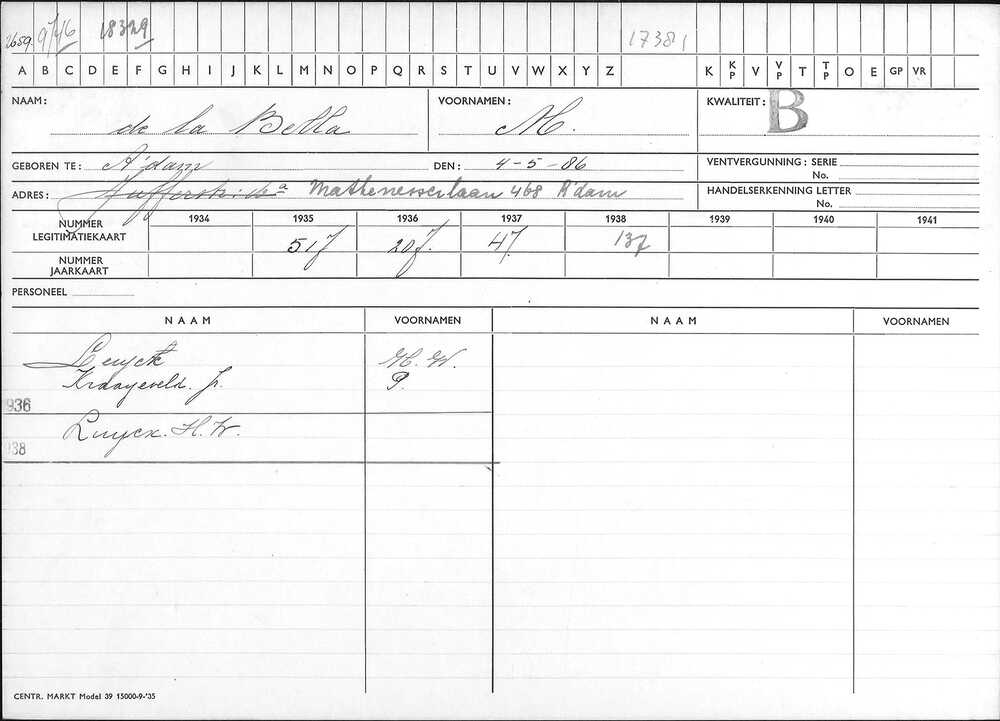 2659. 9746 18329 17381
A B C D E F G H I J K L M N O P Q R S T U V W X Y Z K KP V VP T TP O E GP VR
NAAM: de la Bella VOORNAMEN: M. KWALITEIT: B
GEBOREN TE: A'dam DEN: 4-5-86 VENTVERGUNNING: SERIE
No.
ADRES: Mathenesserlaan 468 R'dam HANDELSERKENNING LETTER
No.
1934 1935 1936 1937 1938 1939 1940 1941
NUMMER LEGITIMATIEKAART 517 207. 47. 137
NUMMER JAARKAART
PERSONEEL
NAAM VOORNAMEN NAAM VOORNAMEN
Luyck H. W.
Kraayeveld. Jr. P.
1936
Luycx. H. W.
38
CENTR. MARKT Model 39 15000-9-'35